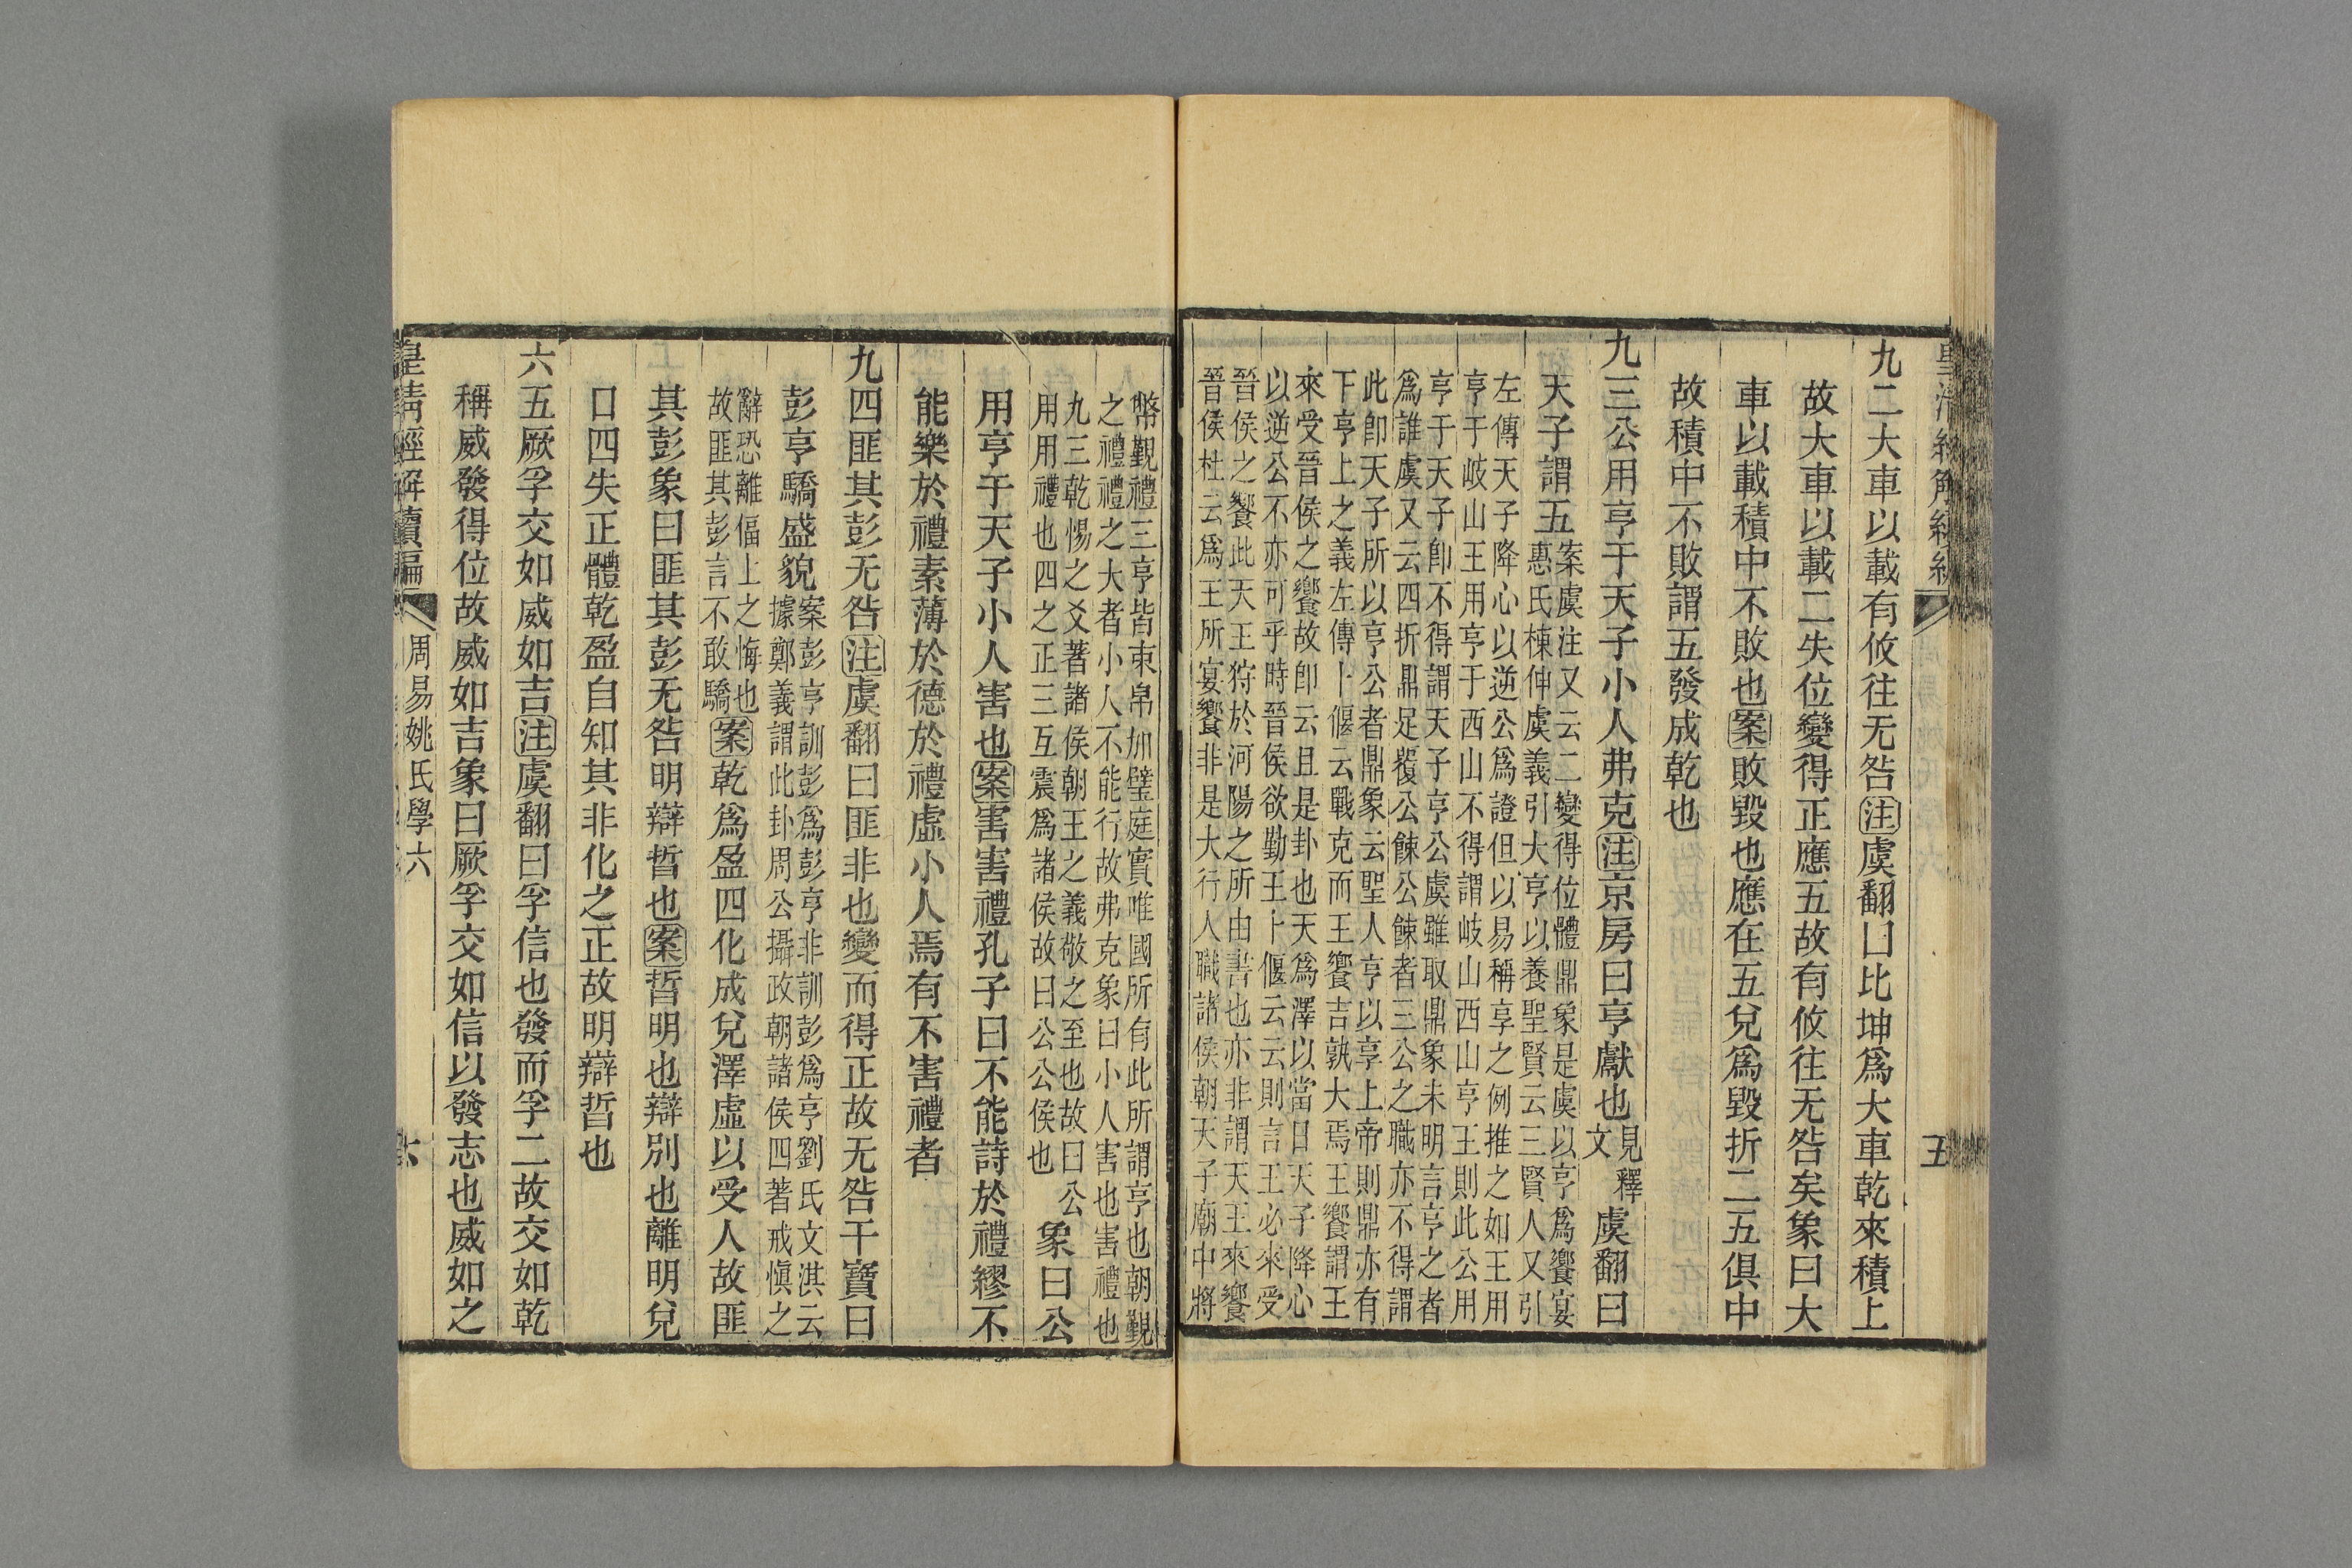 九二大車以載有攸往无咎注虞翻曰比坤爲大車乾來積上
故大車以載二失位變得正應五故有攸往无咎矣象曰大
車以載積中不敗也案敗毀也應在五兌爲毀折二五俱中
故積中不敗謂五發成乾也
九三公用亨于天子小人弗克注京房曰亨獻也見釋文虞翻曰
天子謂五案虞注又云二變得位體鼎象是虞以亨爲饗宴
惠氏棟伸虞義引大亨以養聖賢云三賢人又引
左傳天子降心以逆公爲證但以易稱享之例推之如王用
亨于岐山王用亨于西山不得謂岐山西山亨王則此公用
亨于天子卽不得謂天子亨公虞雖取鼎象未明言亨之者
爲誰虞又云四折鼎足覆公餗公餗者三公之職亦不得謂
此卽天子所以亨公者鼎彖云聖人亨以享上帝則鼎亦有
下亨上之義左傳卜偃云戰克而王饗吉孰大焉王饗謂王
來受晉侯之饗故卽云且是卦也天爲澤以當日天子降心
以逆公不亦可乎時晉侯欲勤王卜偃云云則言王必來受
晉侯之饗此天王狩於河陽之所由書也亦非謂天王來饗
晉侯杜云爲王所宴饗非是大行人職諸侯朝天子廟中將
幣覲禮三亨皆束帛加璧庭實唯國所有此所謂亨也朝覲
之禮禮之大者小人不能行故弗克象曰小人害也害禮也
九三乾惕之爻著諸侯朝王之義敬之至也故曰公
用用禮也四之正三互震爲諸侯故曰公公侯也象曰公
用亨于天子小人害也案害害禮孔子曰不能詩於禮繆不
能樂於禮素薄於德於禮虛小人焉有不害禮者
九四匪其彭无咎注虞翻曰匪非也變而得正故无咎干寶曰
彭亨驕盛貌案彭亨訓彭爲彭亨非訓彭爲亨劉氏文淇云
據鄭義謂此卦周公攝政朝諸侯四著戒愼之
辭恐離偪上之悔也
故匪其彭言不敢驕案乾爲盈四化成兌澤虛以受人故匪
其彭象曰匪其彭无咎明辯晢也案晢明也辯別也離明兌
口四失正體乾盈自知其非化之正故明辯晢也
六五厥孚交如威如吉注虞翻曰孚信也發而孚二故交如乾
稱威發得位故威如吉象曰厥孚交如信以發志也威如之
皇清經解續編
周易姚氏學六
六
五